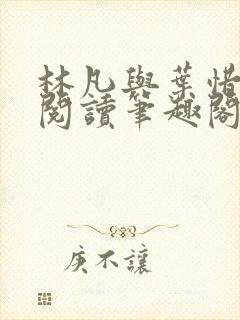 林凡與葉惜
閱讀筆趣閣
庚不讓